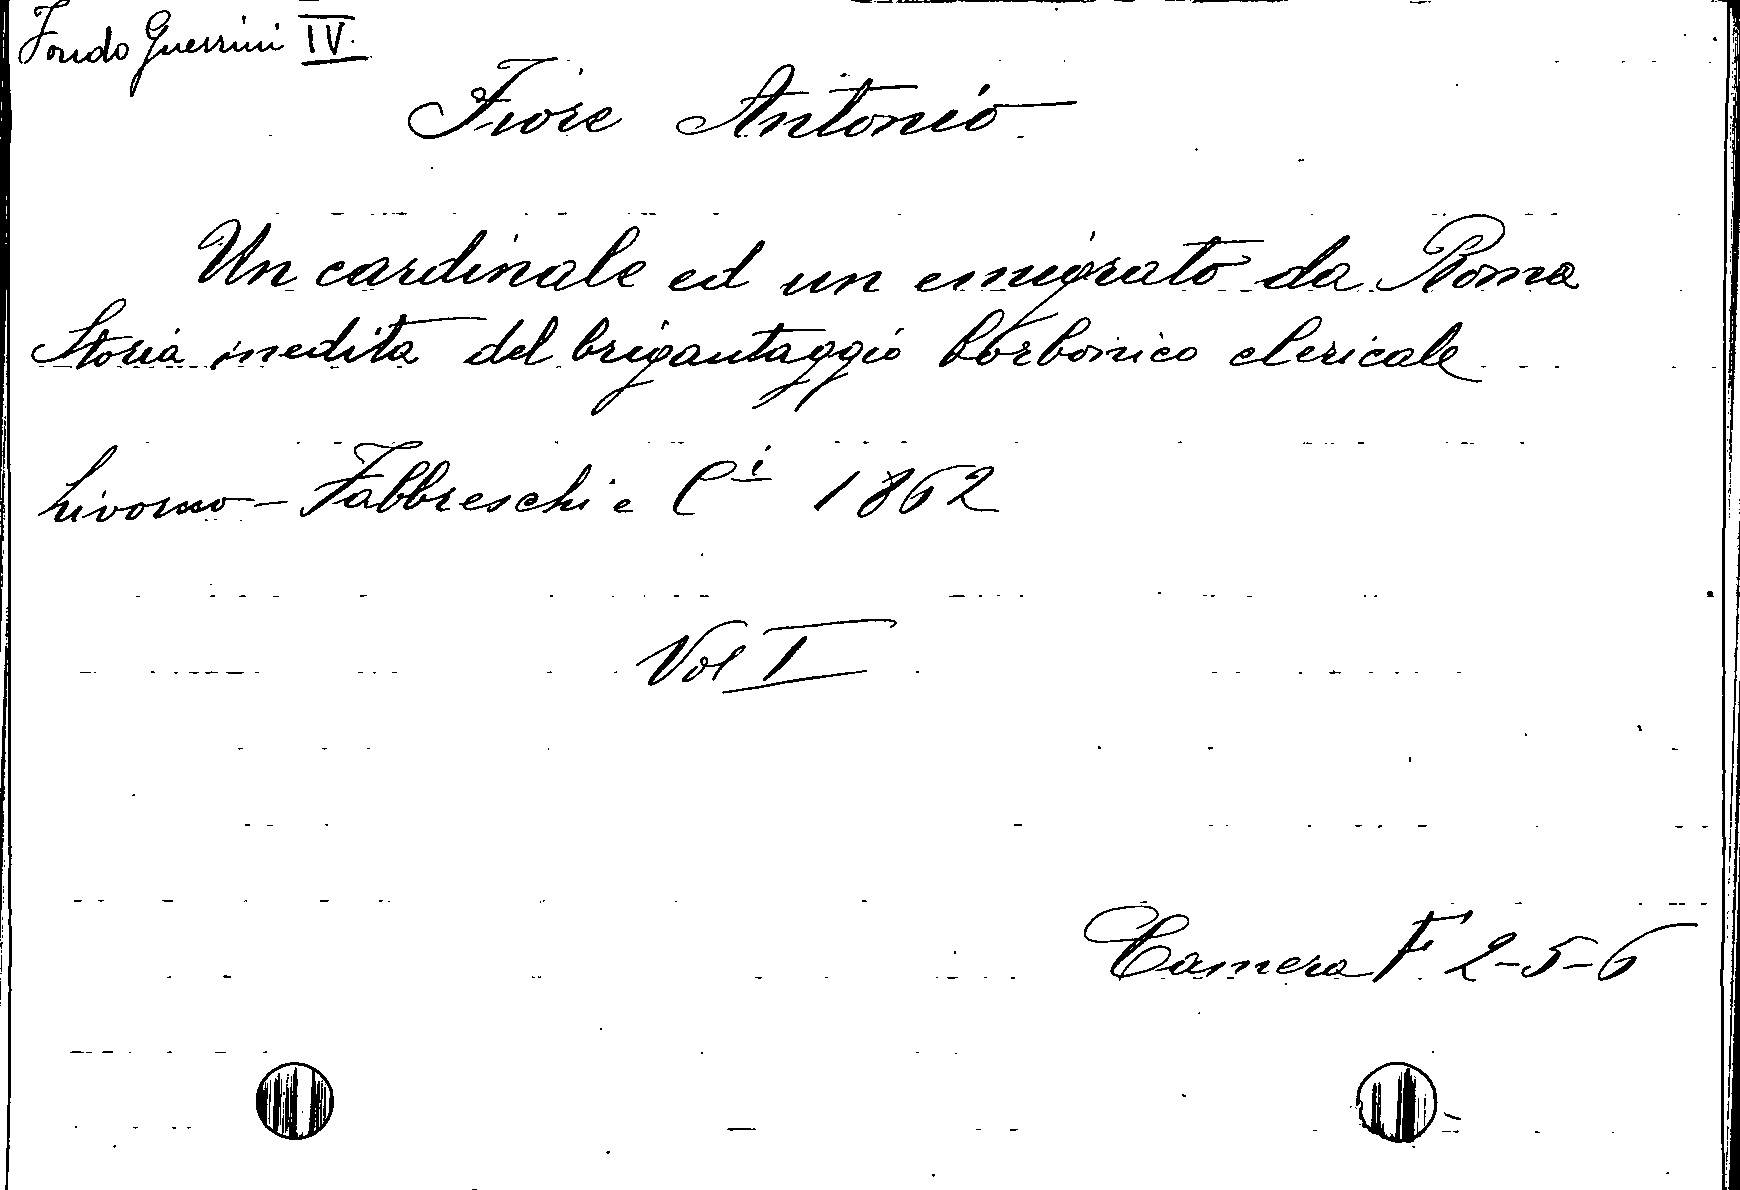 Fondo Guerrini IV.
Fiore Antonio
Un cardinale ed un emigrato da Roma
Storia inedita del brigantaggio borbonico clericale
Livorno - Fabbreschi e Ci 1862
Vol I
Camera F. 2-5-6